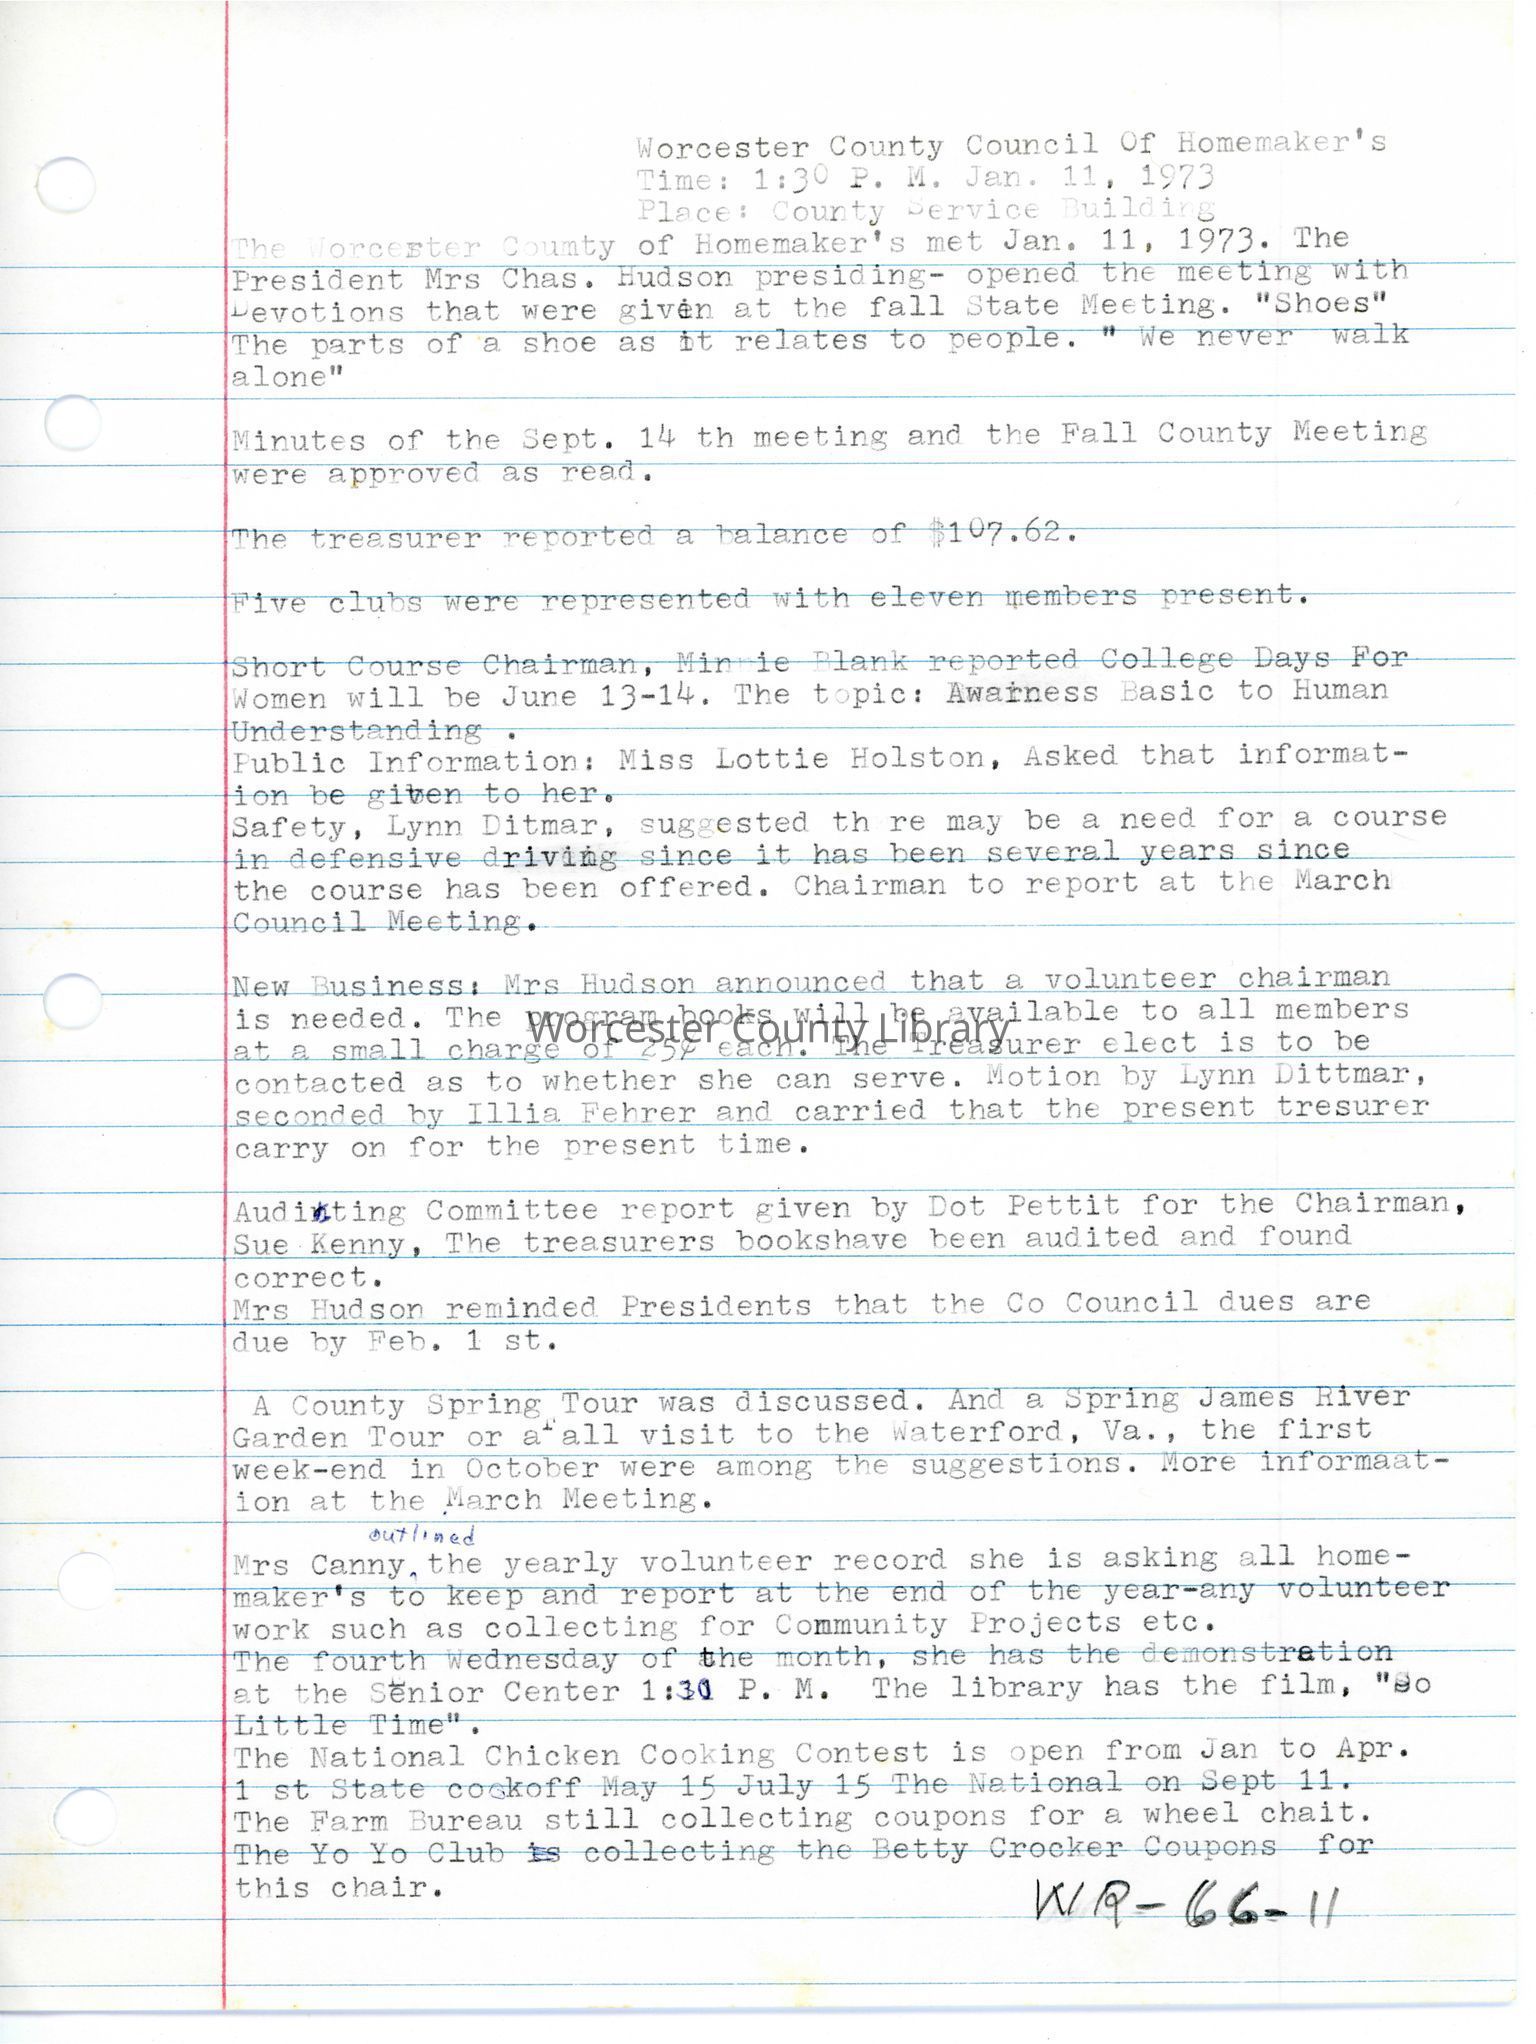 Worcester County Council Of Homemaker's
Time: 1:30 P. M. Jan. 11, 1973
Place: County Service Building
The Worcester Coumty of Homemaker's met Jan. 11, 1973. The
President Mrs Chas. Hudson presiding- opened the meeting with
Devotions that were given at the fall State Meeting. "Shoes"
The parts of a shoe as it relates to people. " We never walk
alone"
Minutes of the Sept. 14 th meeting and the Fall County Meeting
were approved as read.
The treasurer reported a balance of $107.62.
Five clubs were represented with eleven members present.
Short Course Chairman, Minnie Blank reported College Days For
Women will be June 13-14. The topic: Awairness Basic to Human
Understanding .
Public Information: Miss Lottie Holston, Asked that informat-
ion be given to her.
Safety, Lynn Ditmar, suggested th re may be a need for a course
in defensive driving since it has been several years since
the course has been offered. Chairman to report at the March
Council Meeting.
New Business: Mrs Hudson announced that a volunteer chairman
is needed. The program books will be available to all members
Worcester County Library
at a small charge of 25¢ each. The Treasurer elect is to be
contacted as to whether she can serve. Motion by Lynn Dittmar,
seconded by Illia Fehrer and carried that the present tresurer
carry on for the present time.
Auditing Committee report given by Dot Pettit for the Chairman,
Sue Kenny, The treasurers bookshave been audited and found
correct.
Mrs Hudson reminded Presidents that the Co Council dues are
due by Feb. 1 st.
A County Spring Tour was discussed. And a Spring James River
Garden Tour or a fall visit to the Waterford, Va., the first
week-end in October were among the suggestions. More informaat-
ion at the March Meeting.
outlined
Mrs Canny, the yearly volunteer record she is asking all home-
maker's to keep and report at the end of the year-any volunteer
work such as collecting for Community Projects etc.
The fourth Wednesday of the month, she has the demonstration
at the Senior Center 1:30 P. M. The library has the film, "So
Little Time".
The National Chicken Cooking Contest is open from Jan to Apr.
1 st State cookoff May 15 July 15 The National on Sept 11.
The Farm Bureau still collecting coupons for a wheel chait.
The Yo Yo Club is collecting the Betty Crocker Coupons for
this chair.
WR-66-11